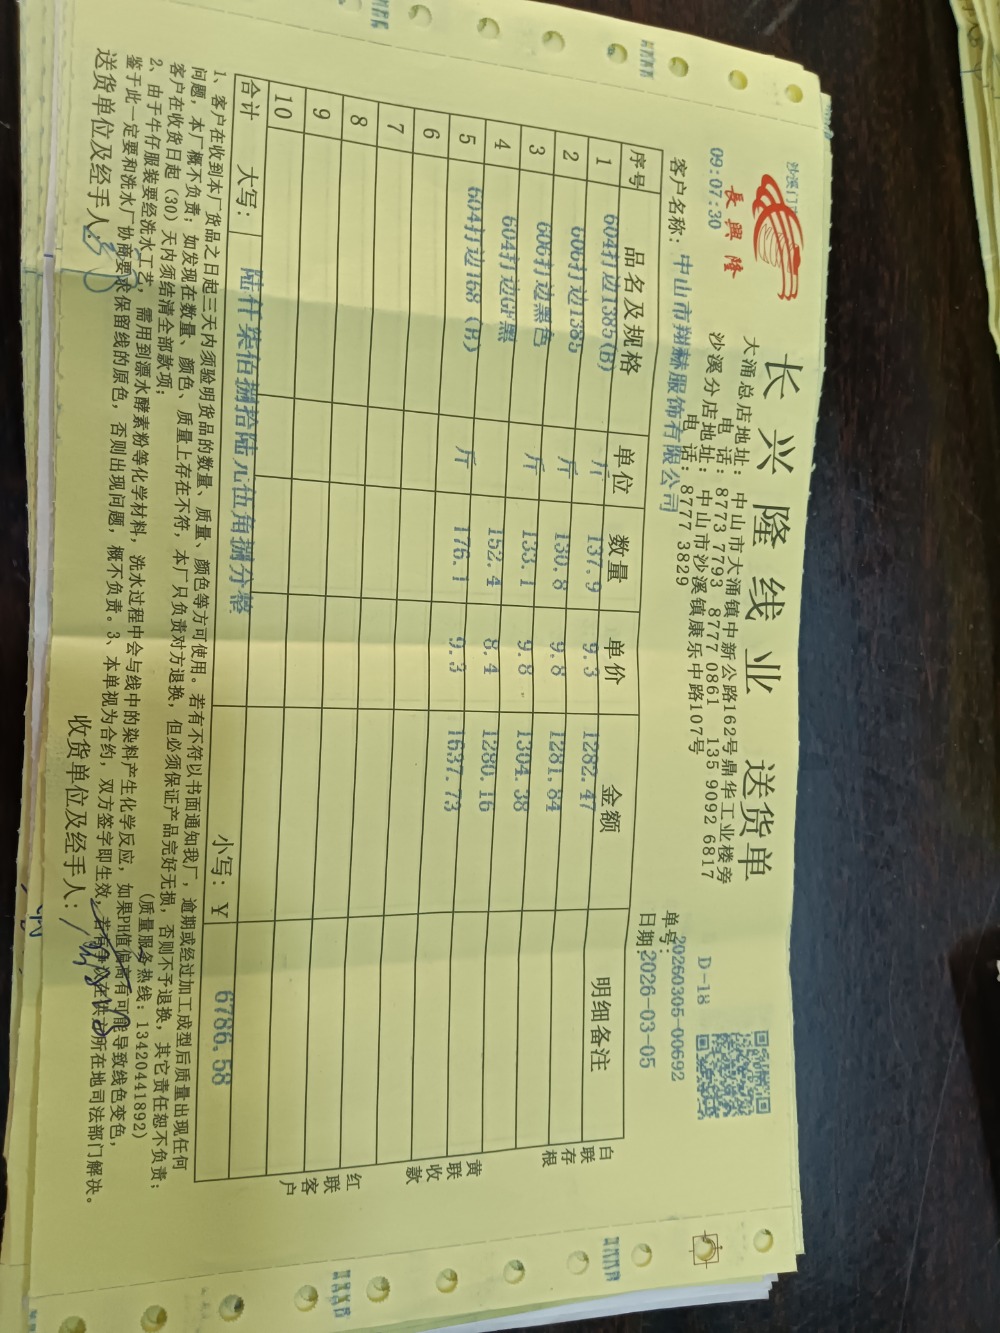 沙溪门
09:07:30
長興隆
长兴隆线业 送货单
大涌总店地址：中山市大涌镇中新公路162号鼎华工业楼旁
电 话：8773 7793 8777 0861 135 9092 6817
沙溪分店地址：中山市沙溪镇康乐中路107号
电 话：8777 3829
D-18
单号：20260305-00692
客户名称：中山市翔赫服饰有限公司
日期：2026-03-05
序号 品名及规格 单位 数量 单价 金额 明细备注
1 604打边1385(B) 斤 137.9 9.3 1282.47
2 606打边1385 斤 130.8 9.8 1281.84
3 606打边黑色 斤 133.1 9.8 1304.38
4 604打边GF黑 152.4 8.4 1280.16
5 604打边168（B） 斤 176.1 9.3 1637.73
6
7
8
9
10
合计 大写：陆仟柒佰捌拾陆元伍角捌分整 小写：￥ 6786.58
白联存根
黄联收款
红联客户
1、客户在收到本厂货品之日起三天内须验明货品的数量、质量、颜色等方可使用。若有不符以书面通知我厂，逾期或经过加工成型后质量出现任何
问题，本厂概不负责；如发现在数量、颜色、质量上存在不符，本厂只负责对方退换，但必须保证产品完好无损，否则不予退换，其它责任恕不负责；
客户在收货日起（30）天内须结清全部款项； （质量服务热线：13420441892）
2、由于牛仔服装要经洗水工艺，需用到漂水酵素粉等化学材料，洗水过程中会与线中的染料产生化学反应，如果PH值偏高有可能导致线色变色，
鉴于此一定要和洗水厂协商要求保留线的原色，否则出现问题，概不负责。3、本单视为合约，双方签字即生效，若有争议在供方所在地司法部门解决。
送货单位及经手人： 收货单位及经手人：